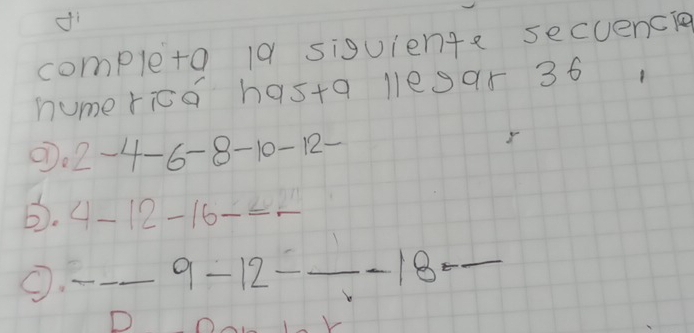 completa la siguiente secuencia
numerica hasta llegar 36
a). 2-4-6-8-10-12-
b). 4-12-16---
c). --- 9-12-__-18-—